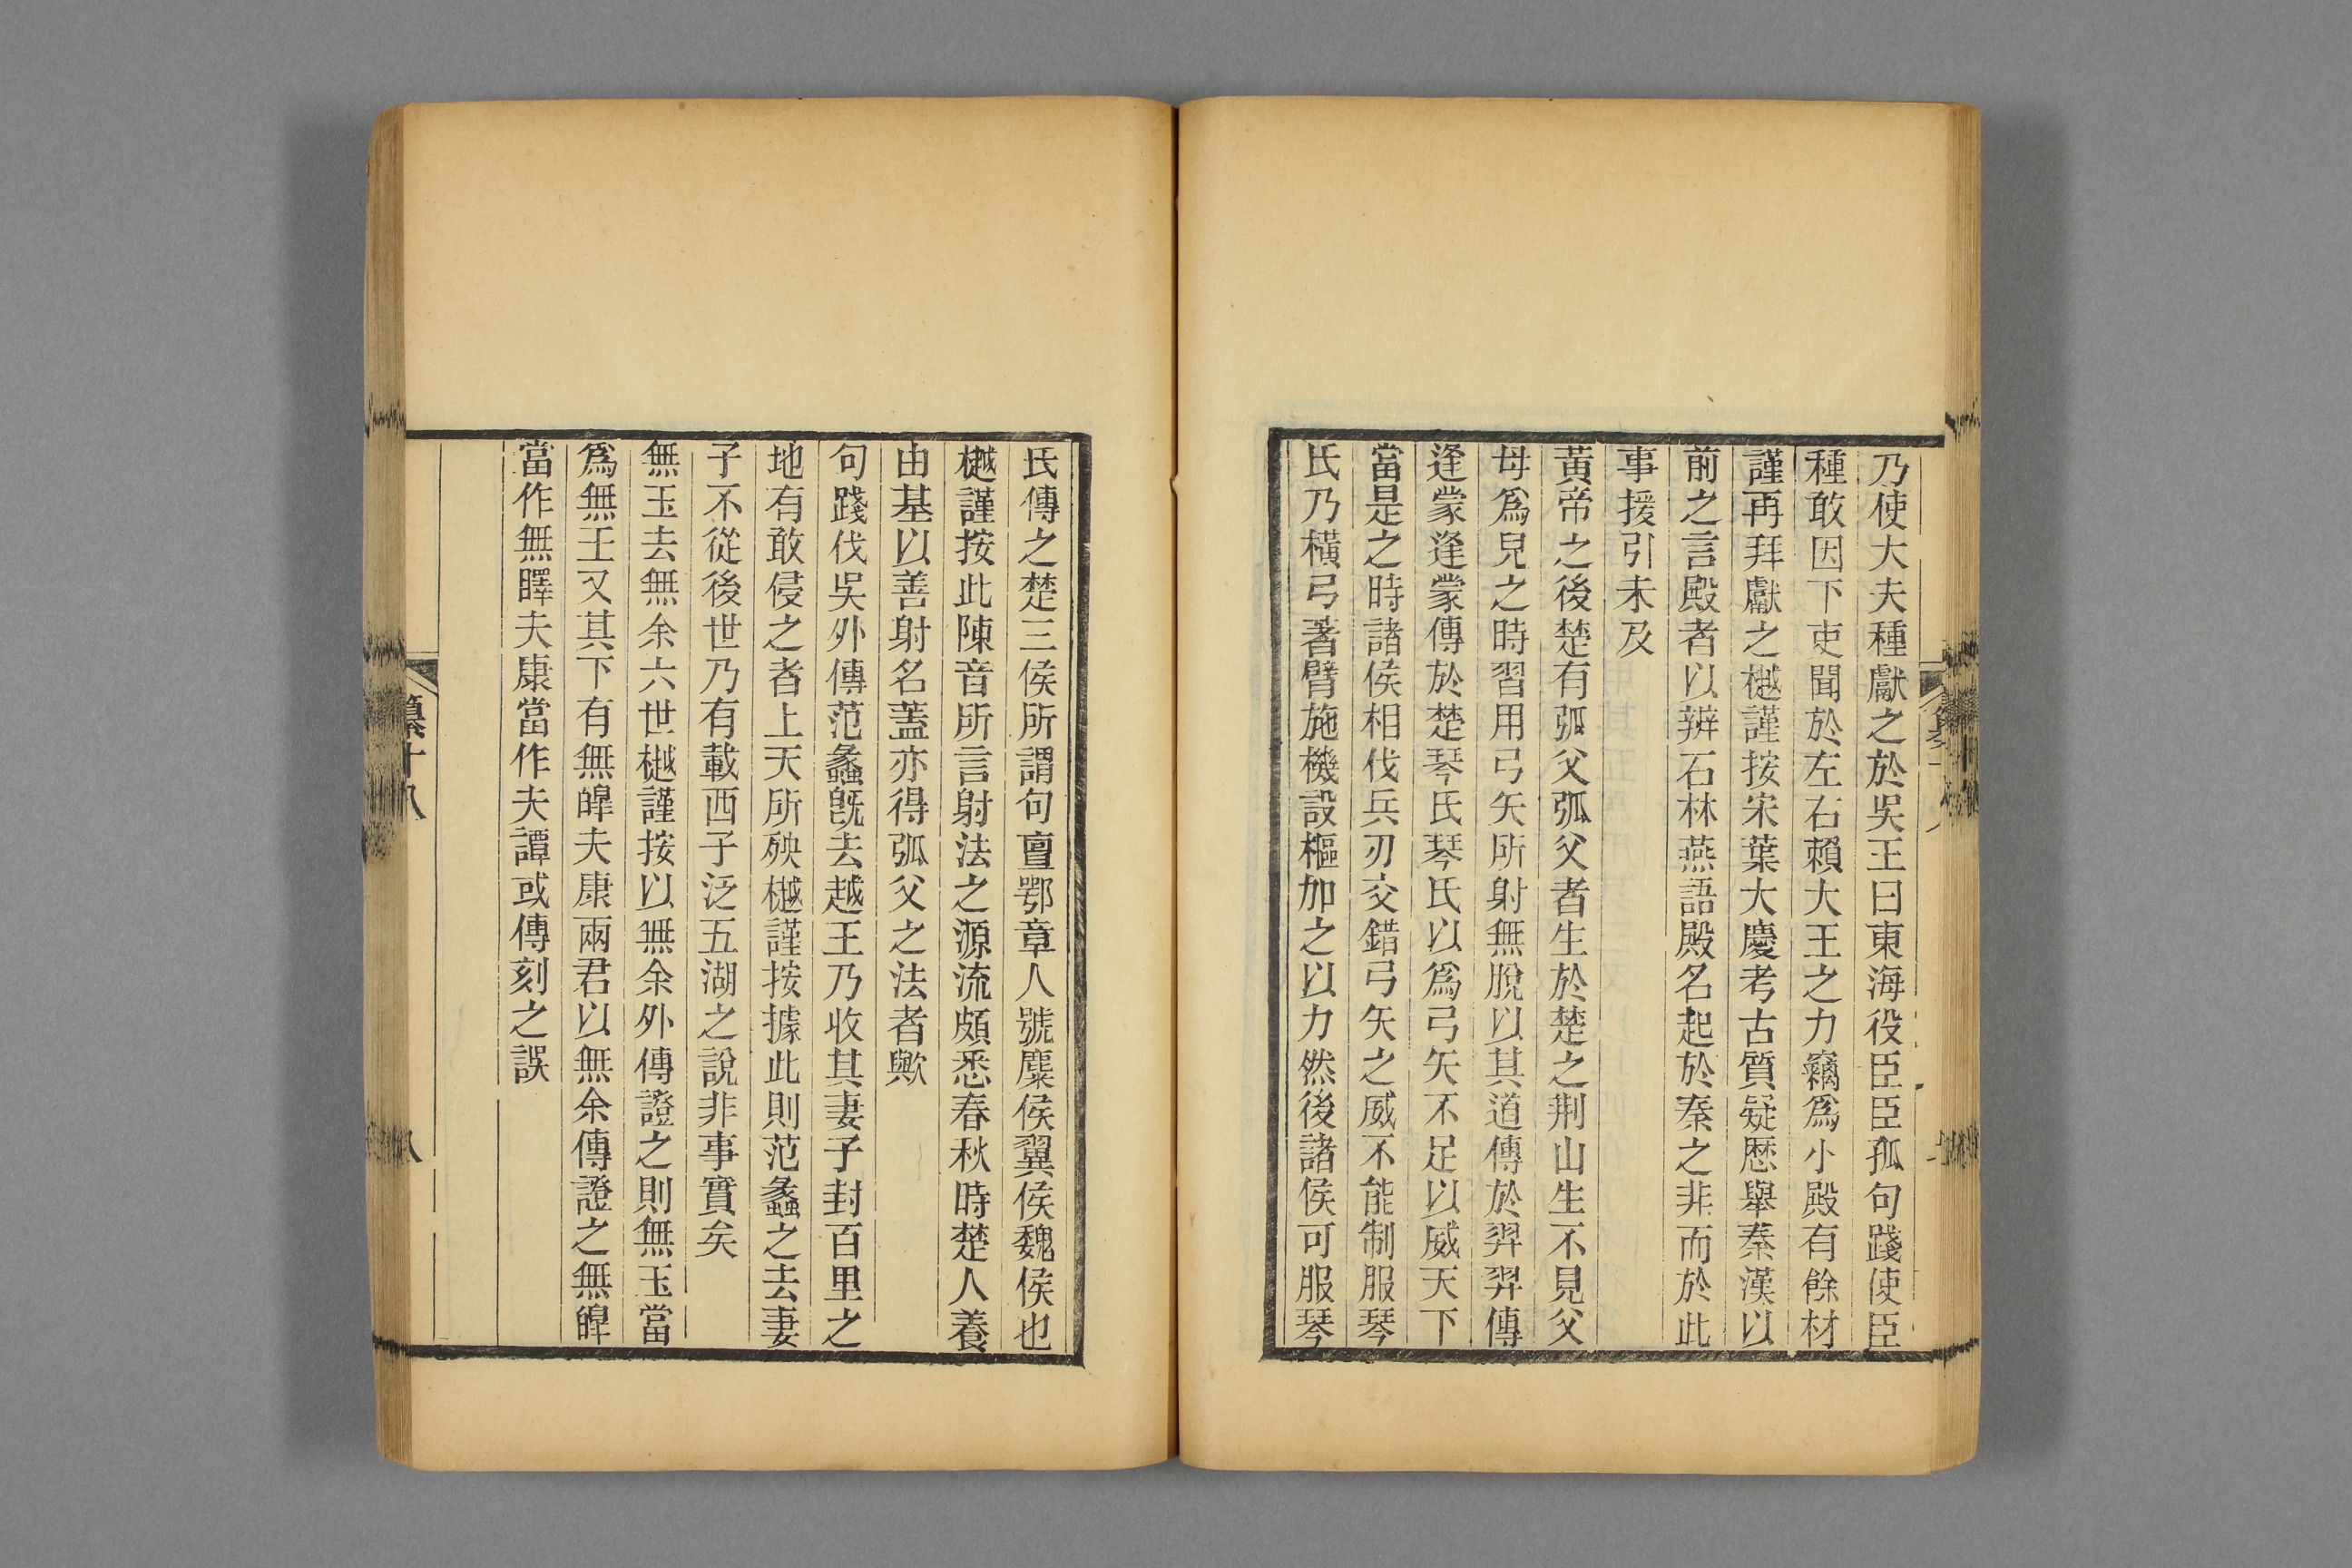 乃使大夫種獻之於吳王曰東海役臣臣孤句踐使臣
種敢因下吏聞於左右賴大王之力竊爲小殿有餘材
謹再拜獻之樾謹按宋葉大慶考古質疑歷舉秦漢以
前之言殿者以辨石林燕語殿名起於秦之非而於此
事援引未及
黃帝之後楚有弧父弧父者生於楚之荆山生不見父
母爲兒之時習用弓矢所射無脫以其道傳於羿羿傳
逢蒙逢蒙傳於楚琴氏琴氏以爲弓矢不足以威天下
當是之時諸侯相伐兵刃交錯弓矢之威不能制服琴
氏乃橫弓著臂施機設樞加之以力然後諸侯可服琴
氏傳之楚三侯所謂句亶鄂章人號麋侯翼侯魏侯也
樾謹按此陳音所言射法之源流頗悉春秋時楚人養
由基以善射名蓋亦得弧父之法者歟
句踐伐吳外傳范蠡旣去越王乃收其妻子封百里之
地有敢侵之者上天所殃樾謹按據此則范蠡之去妻
子不從後世乃有載西子泛五湖之說非事實矣
無玉去無余六世樾謹按以無余外傳證之則無玉當
爲無壬又其下有無皡夫康兩君以無余傳證之無皡
當作無曎夫康當作夫譚或傳刻之誤
纂十八
八